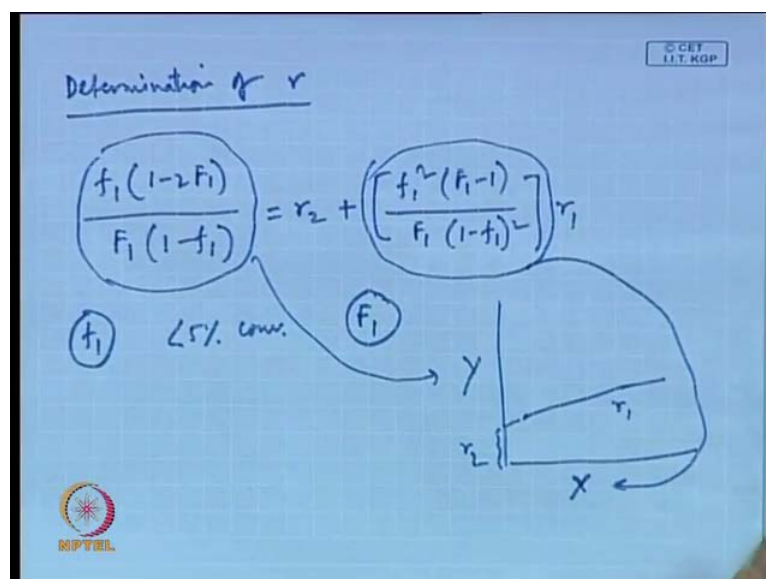 © CET
I.I.T. KGP
Determination of r
f₁(1-2F₁) / F₁(1-f₁) = r₂ + [f₁²(F₁-1) / F₁(1-f₁)²] r₁
f₁ <5% conv. F₁
Y
r₁
r₂
X
NPTEL